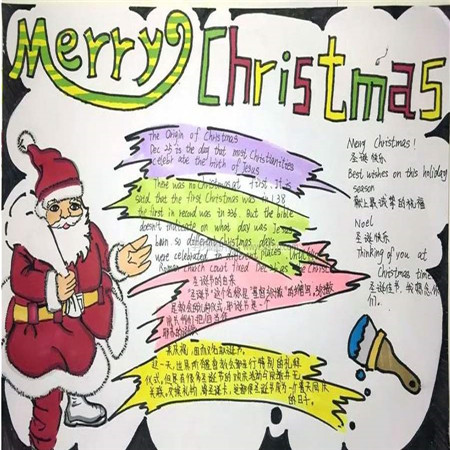 Merry Christmas
The Origin of Christmas
Dec 25 is the day that most Christianities
celebrate the birth of Jesus
There was no Christmas at first. It is
said that the first Christmas was in 138
the first in heard was in 336. But the bible
doesn't on what day was Jesus
born, so different Christmas days
were celebrated to different places. Until
Roman church court fixed Dec as the Christ
圣诞节的由来
"圣诞节"这个名称是"基督弥撒"的缩写,弥撒
是教会的仪式,耶诞节是一个
来庆祝,
这一天,世界所有的基督教会都举行特别的礼拜
仪式,但是有很多圣诞节的欢庆活动和
关联。交换礼物,寄圣诞卡,这都使圣诞节成为一个普天同庆
的日子。
Merry Christmas!
圣诞快乐
Best wishes on this holiday
season
献上最诚挚的祝福
Noel
圣诞快乐
Thinking of you at
Christmas time.
圣诞佳节,我想念你
们。